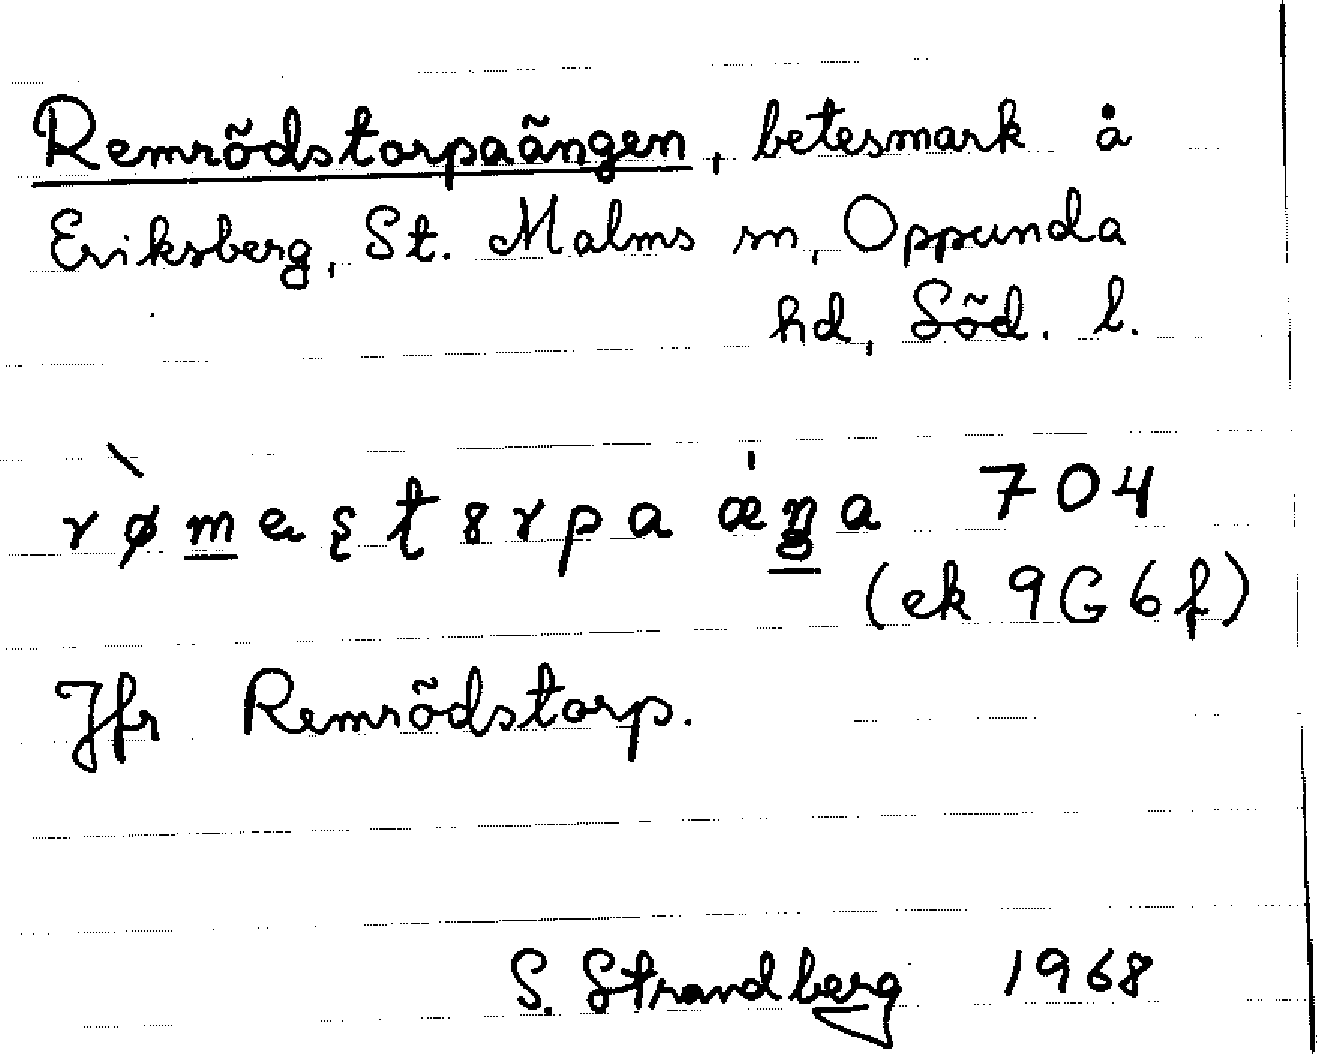 Remrödstorpaängen, betesmark å
Eriksberg, St. Malms sn, Oppunda
hd, Söd. l.
rø̀mesterpa ǽŋa 704
(ek 9G6f)
Jfr Remrödstorp.
S. Strandberg 1968